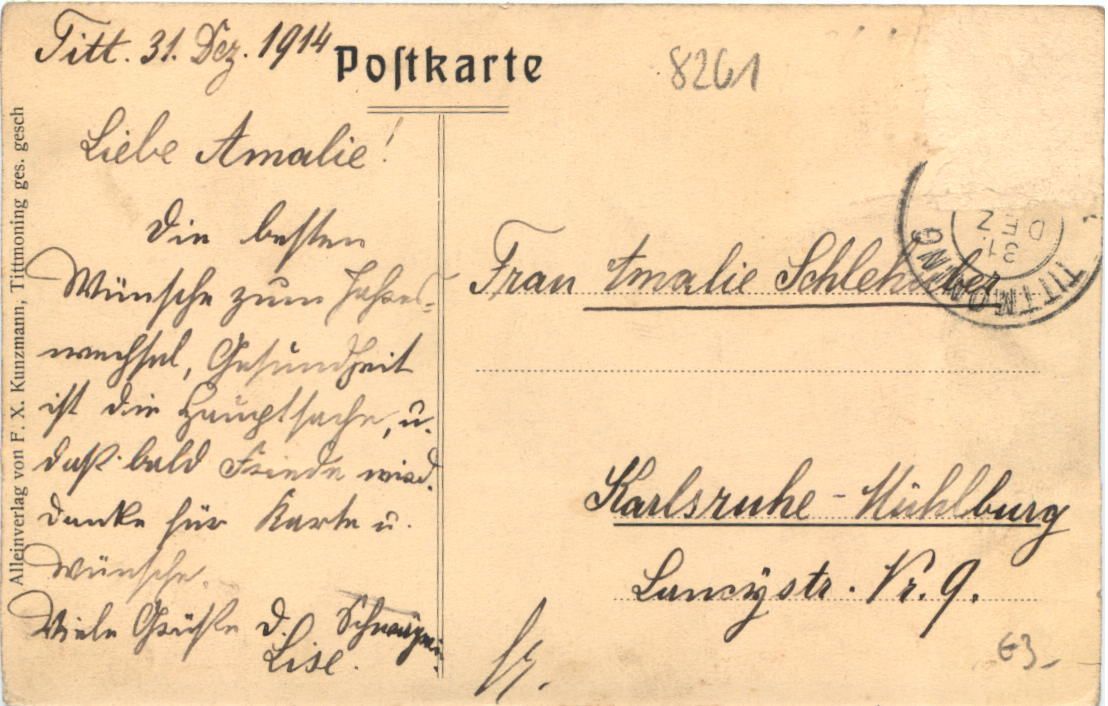 Titt. 31. Dez. 1914
Postkarte
8261
Liebe Amalie!
Die besten
Wünsche zum Jahres-
wechsel, Gesundheit
ist die Hauptsache, u.
daß bald Friede wird.
Danke für Karte u.
Wünsche.
Viele Grüße d. Schwägerin
Lise.
Alleinverlag von F. X. Kunzmann, Tittmoning ges. gesch
TITTMONING
31.
DEZ
Frau Amalie Schlehuber
Karlsruhe-Mühlburg
Lameystr. Nr. 9.
fr.
63.-